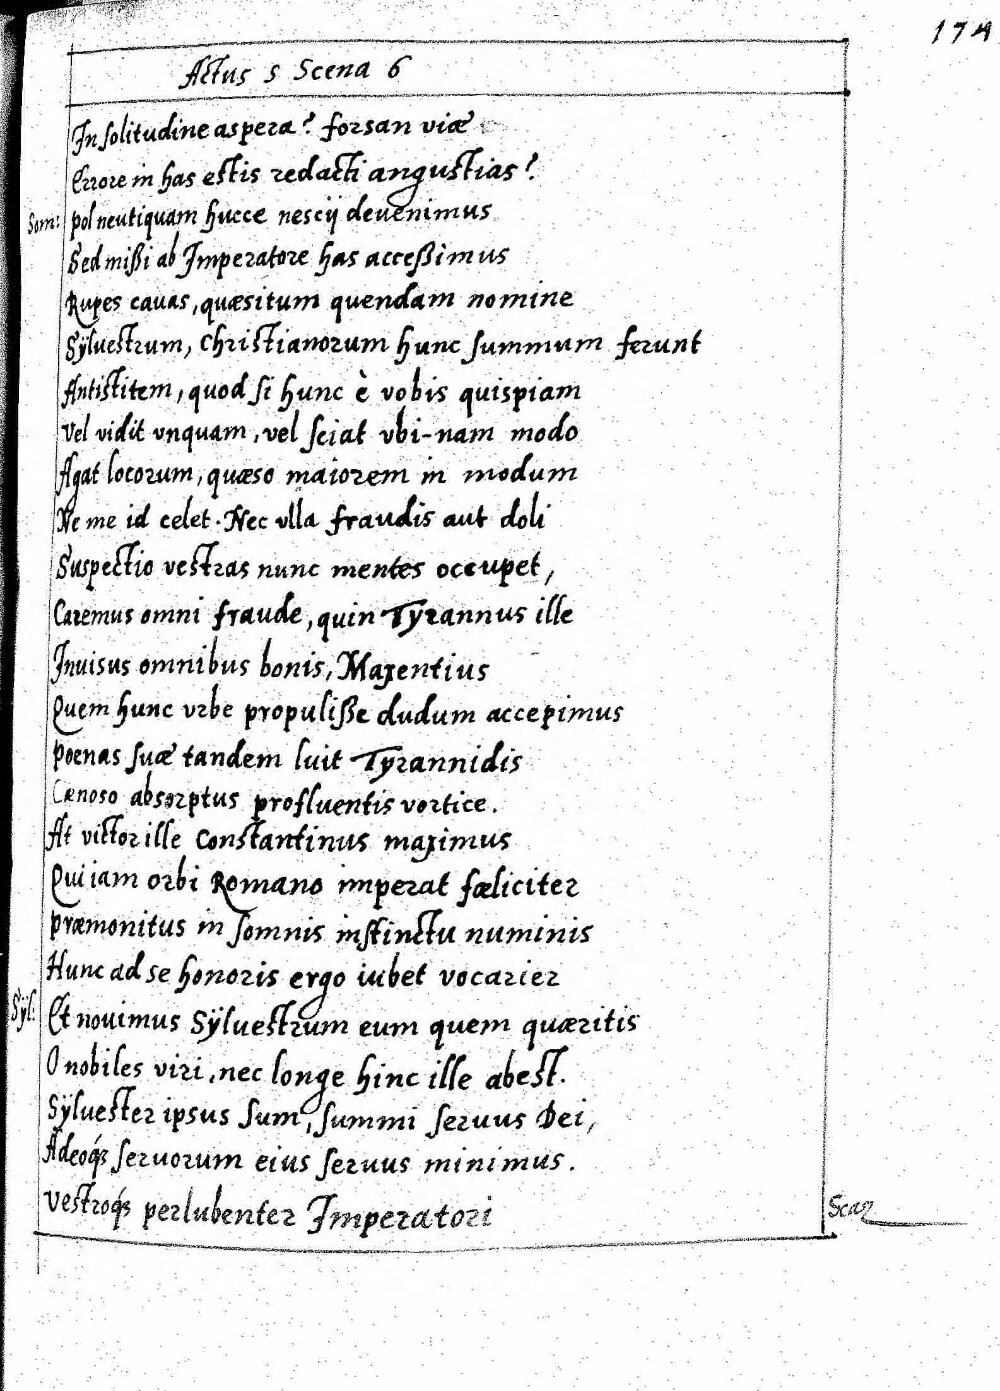 174
Actus 5 Scena 6
In solitudine aspera? forsan viæ
Errore in has estis redacti angustias?
Som: Pol neutiquam hucce nescij deuenimus
Sed mißi ab Imperatore has acceßimus
Rupes cauas, quæsitum quendam nomine
Sÿluestrum, Christianorum hunc summum ferunt
Antistitem, quod si hunc è vobis quispiam
Vel vidit vnquam, vel sciat vbi-nam modo
Agat locorum, quæso maiorem in modum
Ne me id celet. Nec vlla fraudis aut doli
Suspectio vestras nunc mentes occupet,
Caremus omni fraude, quin Tyrannus ille
Inuisus omnibus bonis, Maxentius
Quem hunc vrbe propuliße dudum accepimus
Poenas suæ tandem luit Tyrannidis
Cænoso absorptus profluentis vortice.
At victor ille Constantinus maximus
Qui iam orbi Romano imperat fæliciter
Præmonitus in somnis instinctu numinis
Hunc ad se honoris ergo iubet vocarier
Sÿl: Et nouimus Sÿluestrum eum quem quæritis
O nobiles viri, nec longe hinc ille abest.
Sÿluester ipsus sum, summi seruus Dei,
Adeoq́ꝫ seruorum eius seruus minimus.
Vestroq́ꝫ perlubenter Imperatori